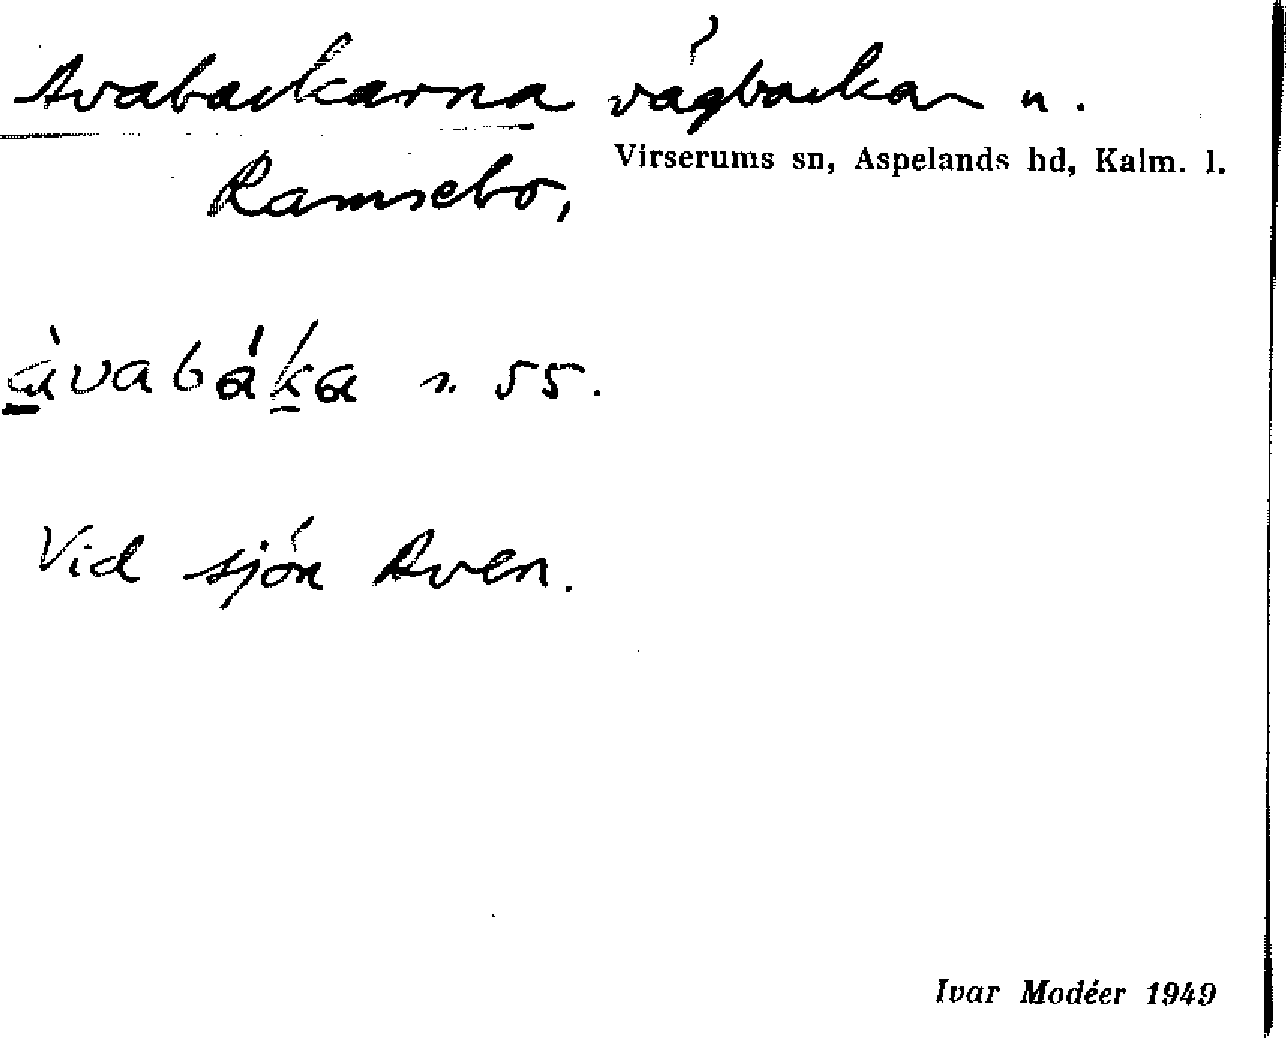 Avabackarna vägbackar n.
Virserums sn, Aspelands hd, Kalm. l.
Ramsebo,
àvabáka s. 55.
Vid sjön Aven.
Ivar Modéer 1949